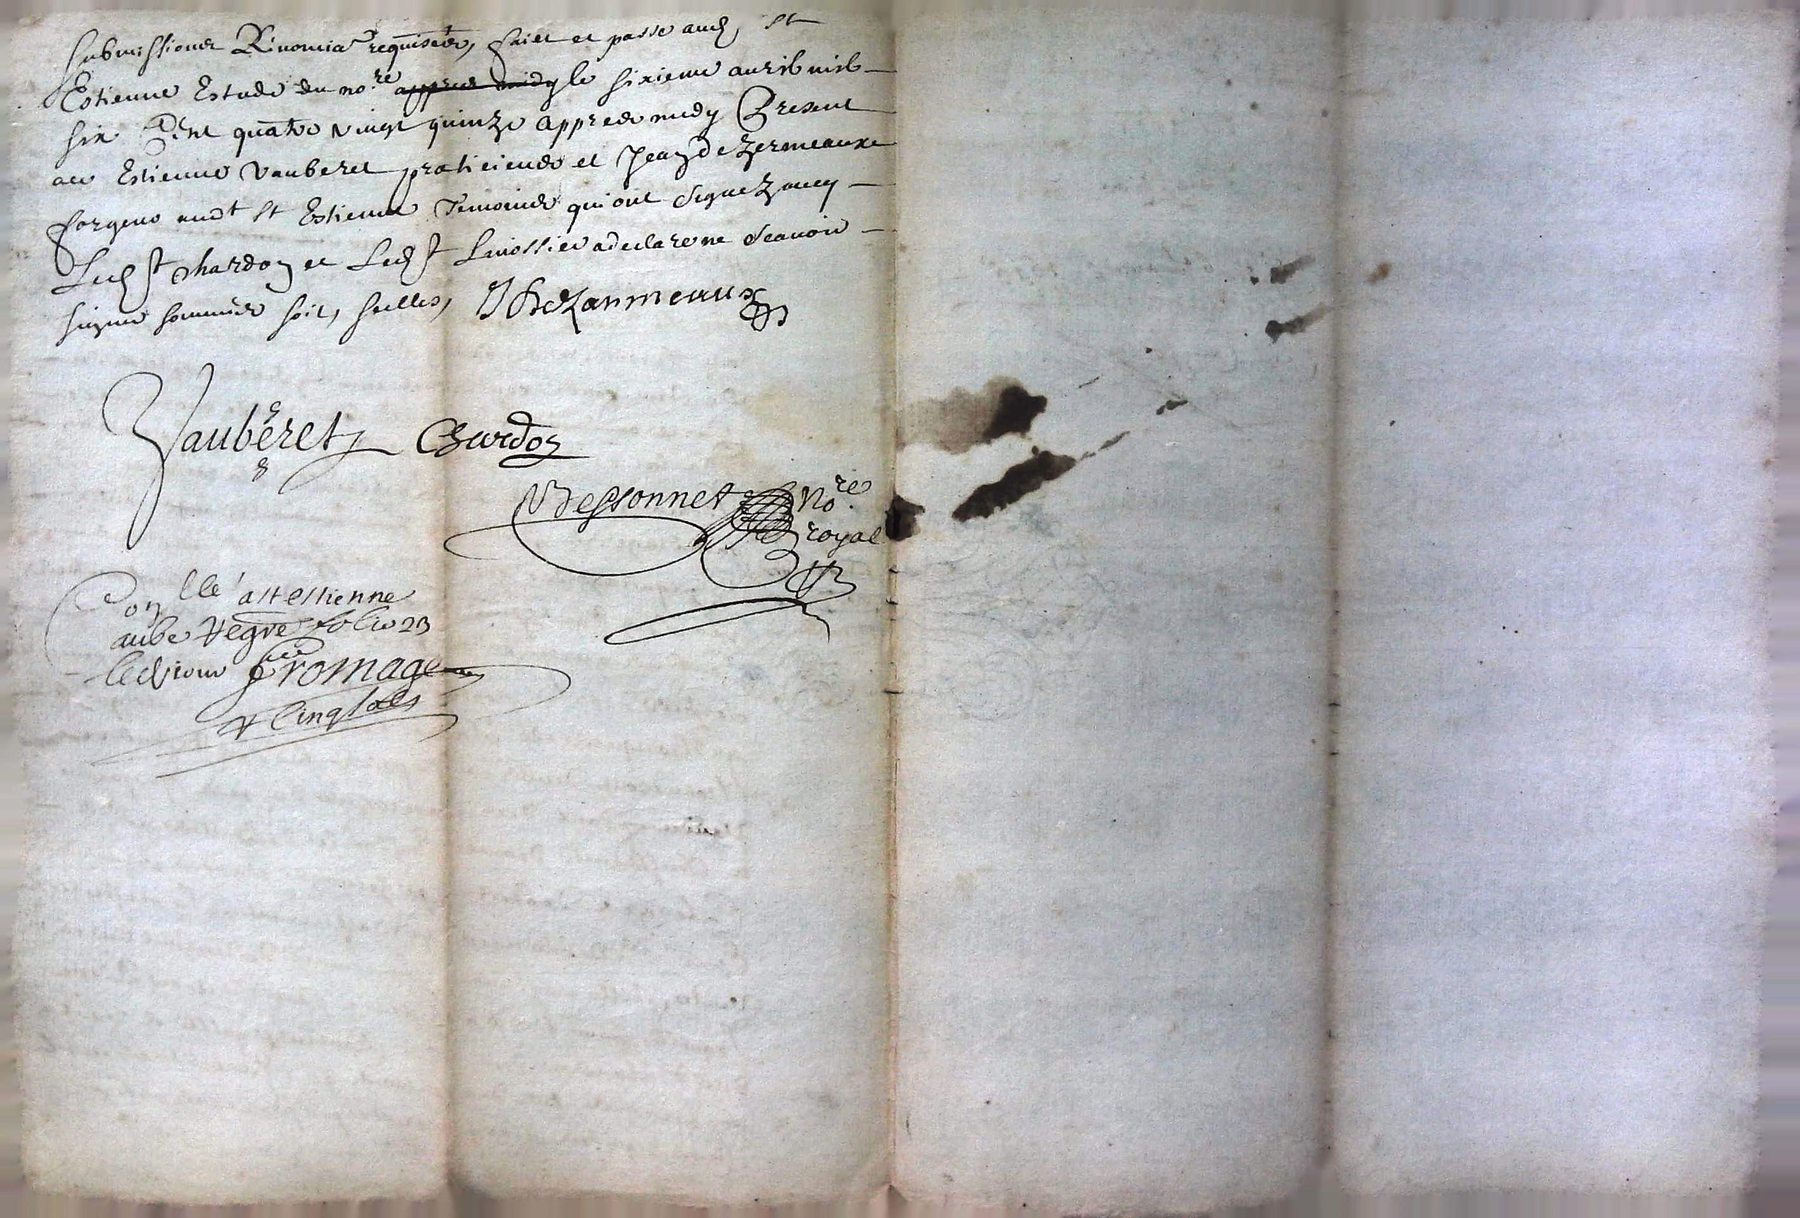 submissions Renonciaõns requises, faict et passé aud, St
Estienne Estude du no.re appres midy le sixieme auril mil
six Cent quatre vingt quinze appres midy Present
ace Estienne Vauberet praticiends et Jean de Zermeaux
forgeur audt St Estienne Temoins qui ont Signez auec
Led St Chardon et Led St Lauossier a declare ne Scauoir
signer sommés soit, scellés, J DeZarmeaux
Vauberet Chardon
Bessonnet No.re
royal
Conllé a st estienne
folio 23
led jour
Fromage